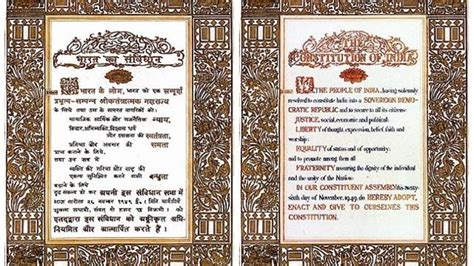 भारत का संविधान
भारत के लोग, भारत को एक सम्पूर्ण
प्रभुत्व-सम्पन्न लोकतन्त्रात्मक गणराज्य
के लिये तथा उस के समस्त नागरिकों को:
सामाजिक आर्थिक और राजनैतिक न्याय,
विचार, अभिव्यक्ति, विश्वास, धर्म
और उपासना की स्वतन्त्रता,
प्रतिष्ठा और अवसर की समता
प्राप्त कराने के लिये,
तथा उन सब में
व्यक्ति की गरिमा और राष्ट्र की
एकता सुनिश्चित करने वाली बन्धुता
बढ़ाने के लिये
दृढ़ संकल्प हो कर अपनी इस संविधान सभा में
आज तारीख २६ नवम्बर १९४९ ई० (मिति मार्गशीर्ष
शुक्ला सप्तमी, सम्वत् दो हजार छै विक्रमी) को
एतद्द्वारा इस संविधान को अङ्गीकृत अधि-
नियमित और आत्मार्पित करते हैं।
THE
CONSTITUTION OF INDIA
WE, THE PEOPLE OF INDIA, having solemnly
resolved to constitute India into a SOVEREIGN DEMO-
CRATIC REPUBLIC and to secure to all its citizens:
JUSTICE, social, economic and political;
LIBERTY of thought, expression, belief, faith and
worship;
EQUALITY of status and of opportunity;
and to promote among them all
FRATERNITY assuring the dignity of the individual
and the unity of the Nation;
IN OUR CONSTITUENT ASSEMBLY this twenty-
sixth day of November, 1949, do HEREBY ADOPT,
ENACT AND GIVE TO OURSELVES THIS
CONSTITUTION.